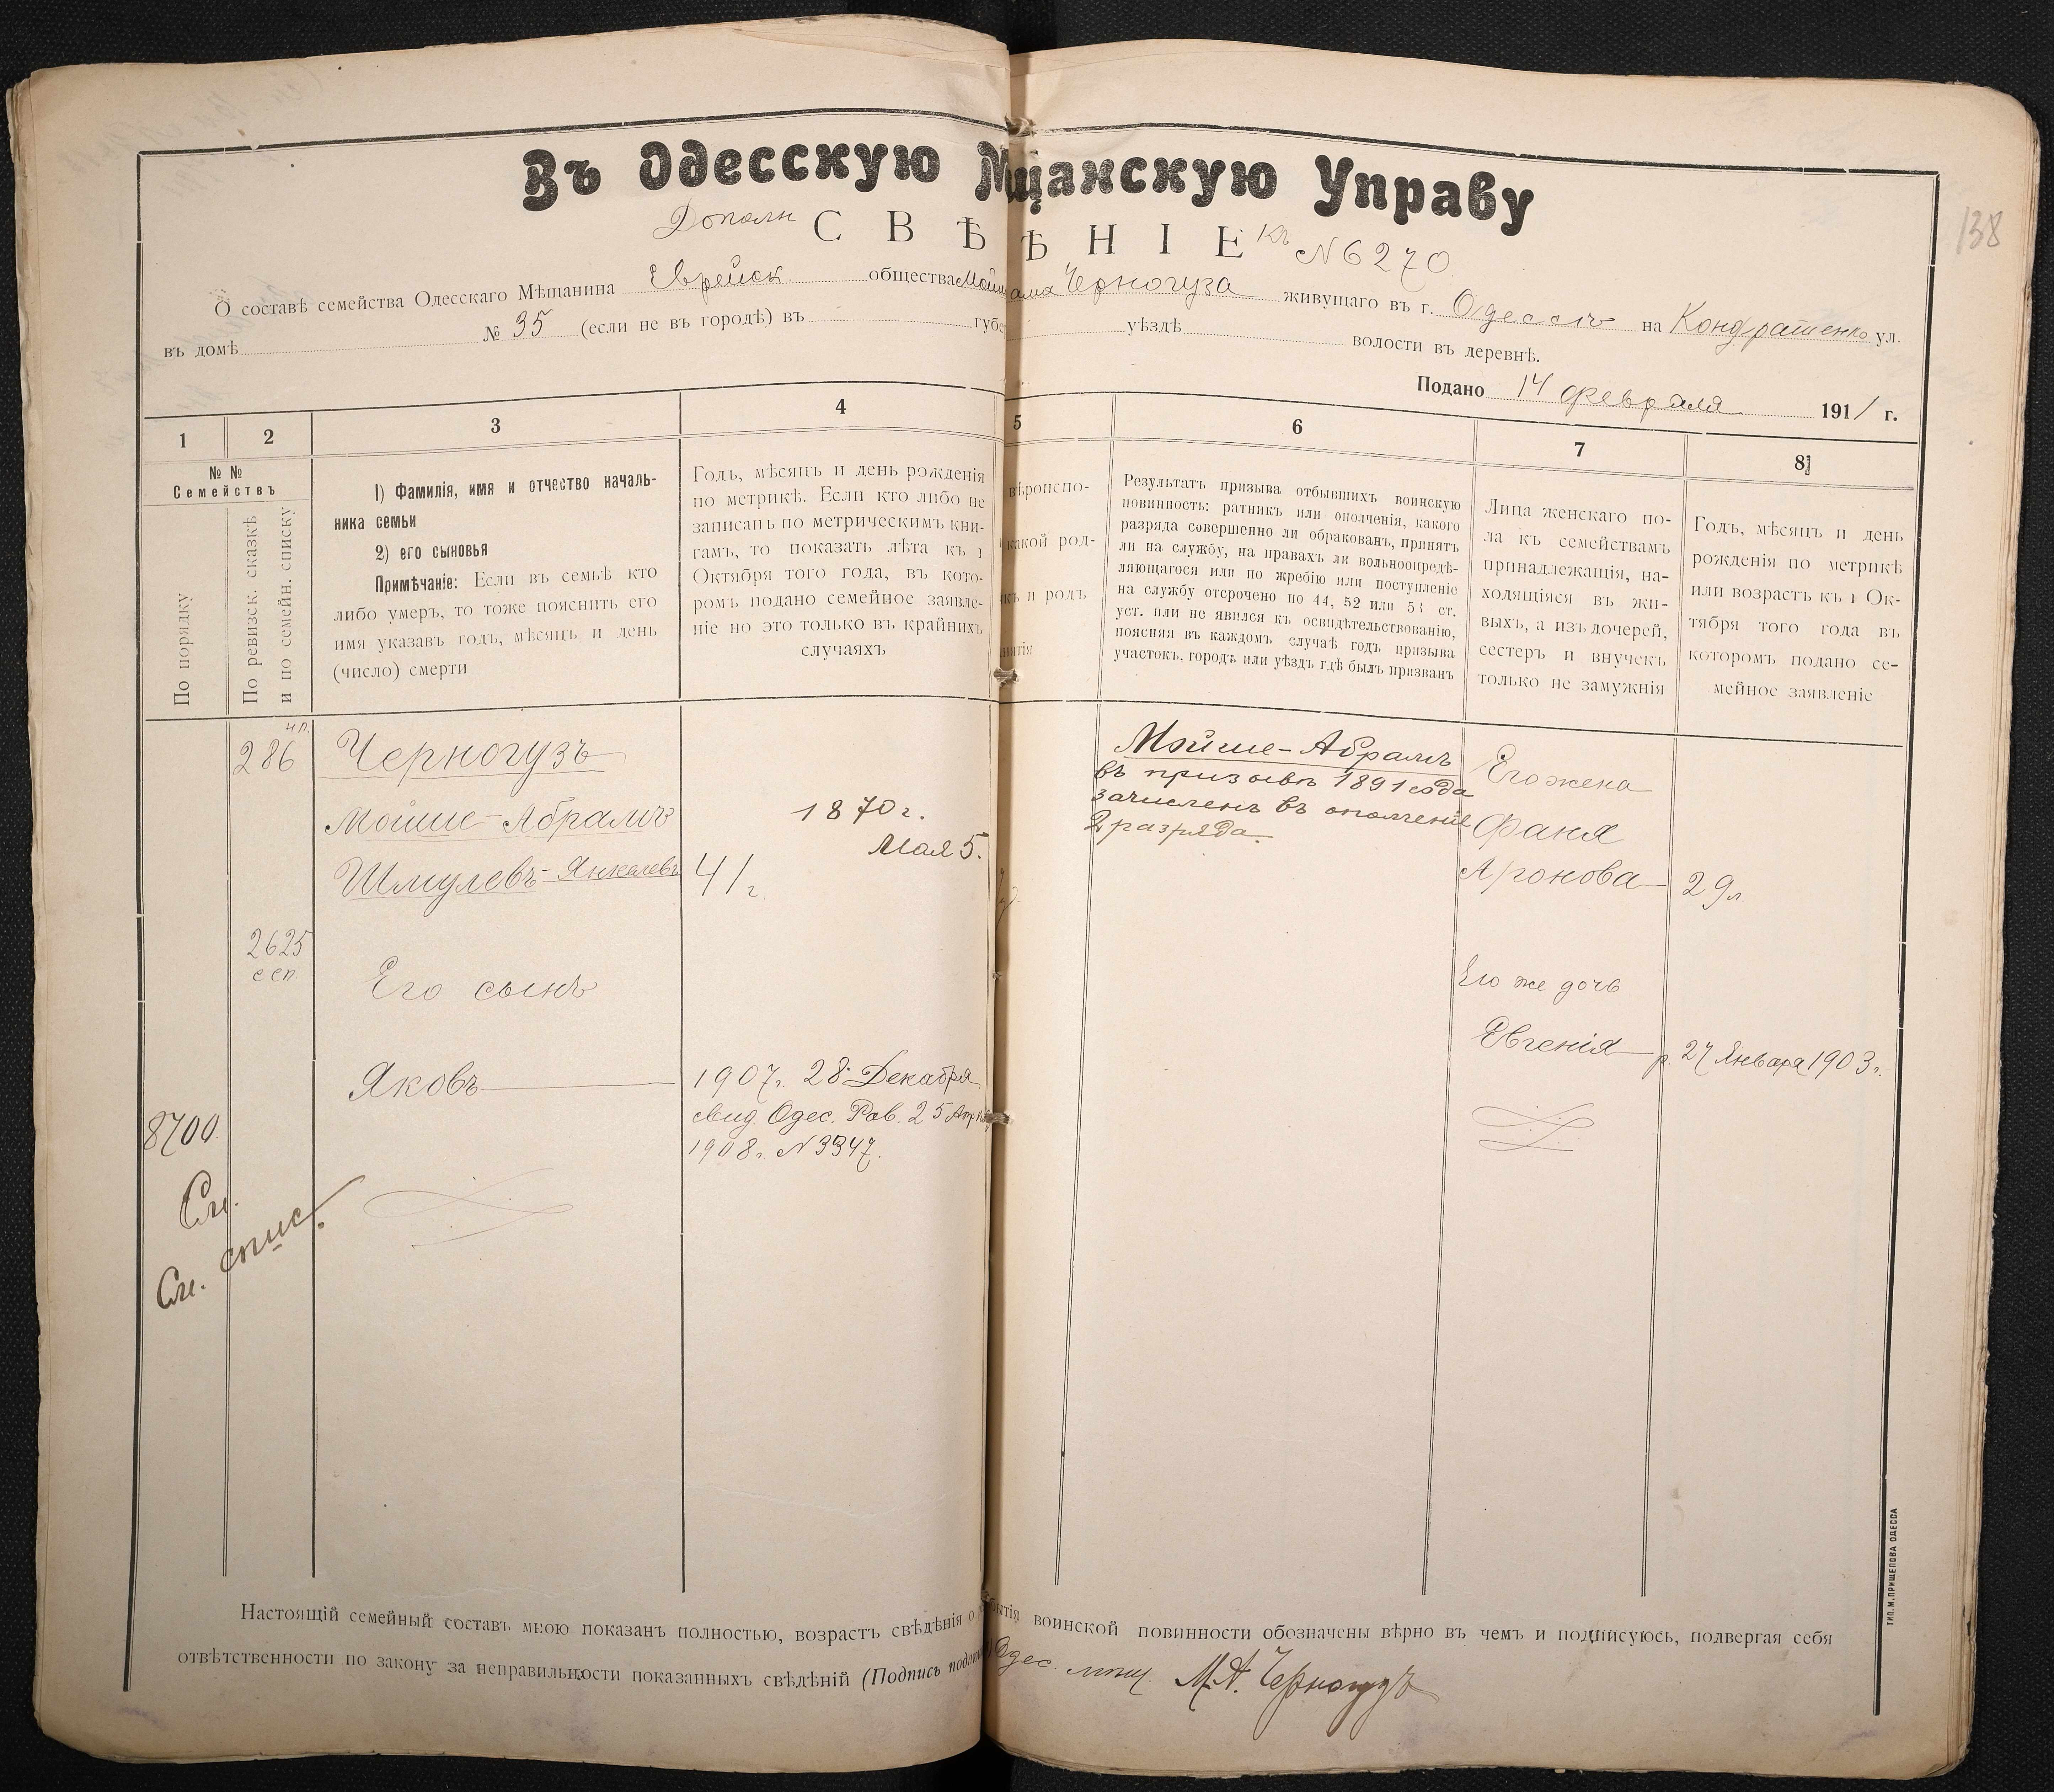 138
Въ Одесскую Мщанскую Управу
Дополн СВѢѢНІЕ къ № 6270
О составѣ семейства Одесскаго Мѣщанина Еврейск. общества Черногуза живущаго въ г. Одессѣ на Кондратенко ул.
въ домѣ № 35 (если не въ городѣ) въ губе уѣздѣ волости въ деревнѣ.
Подано 14 февраля 1911 г.
1 2 3 4 5 6 7 8
№ №
Семействъ
По порядку
По ревизск. сказкѣ
и по семейн. списку
1) Фамилія, имя и отчество началь-
ника семьи
2) его сыновья
Примѣчаніе: Если въ семьѣ кто
либо умеръ, то тоже пояснить его
имя указавъ годъ, мѣсяцъ и день
(число) смерти
Годъ, мѣсяцъ и день рожденія
по метрикѣ. Если кто либо не
записанъ по метрическимъ кни-
гамъ, то показать лѣта къ 1
Октября того года, въ кото-
ромъ подано семейное заявле-
ніе но это только въ крайнихъ
случаяхъ
вѣроиспо-
какой род-
и родъ
нятія
Результатъ призыва отбывшихъ воинскую
повинность: ратникъ или ополченія, какого
разряда совершенно ли обракованъ, принятъ
ли на службу, на правахъ ли вольноопредѣ-
ляющагося или по жребію или поступленіе
на службу отсрочено по 44, 52 или 53 ст.
уст. или не явился къ освидѣтельствованію,
поясняя въ каждомъ случаѣ годъ призыва
участокъ, городъ или уѣздъ гдѣ былъ призванъ
Лица женскаго по-
ла къ семействамъ
принадлежащія, на-
ходящіяся въ жи-
выхъ, а изъ дочерей,
сестеръ и внучекъ
только не замужнія
Годъ, мѣсяцъ и день
рожденія по метрикѣ
или возрастъ къ 1 Ок-
тября того года въ
которомъ подано се-
мейное заявленіе
н.п.
286
Черногузъ
Мойше-Абрамъ
Шмулевъ-Янкелевъ
1870 г.
Мая 5.
41 г.
Мойше-Абрамъ
въ призывѣ 1891 года
зачисленъ въ ополченіе
2 разряда.
Его жена
Фаня
Аронова 29 л.
2625
с сп.
Его сынъ
Его же дочь
Яковъ
1907 г. 28 Декабря
свид. Одес. Рав. 25 Апр
1908 г. № 3347.
Евгенія р. 27 Января 1903 г.
8700
См.
См. спис.
Настоящій семейный составъ мною показанъ полностью, возрастъ свѣдѣнія о бытія воинской повинности обозначены вѣрно въ чемъ и подписуюсь, подвергая себя
отвѣтственности по закону за неправильности показанныхъ свѣдѣній (Подпись Одес. мѣщ. М. А. Черногузъ
ТИП. М. ПРИЩЕПОВА ОДЕССА